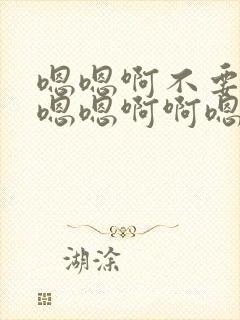 嗯嗯啊不要
嗯嗯啊啊嗯
湖涂